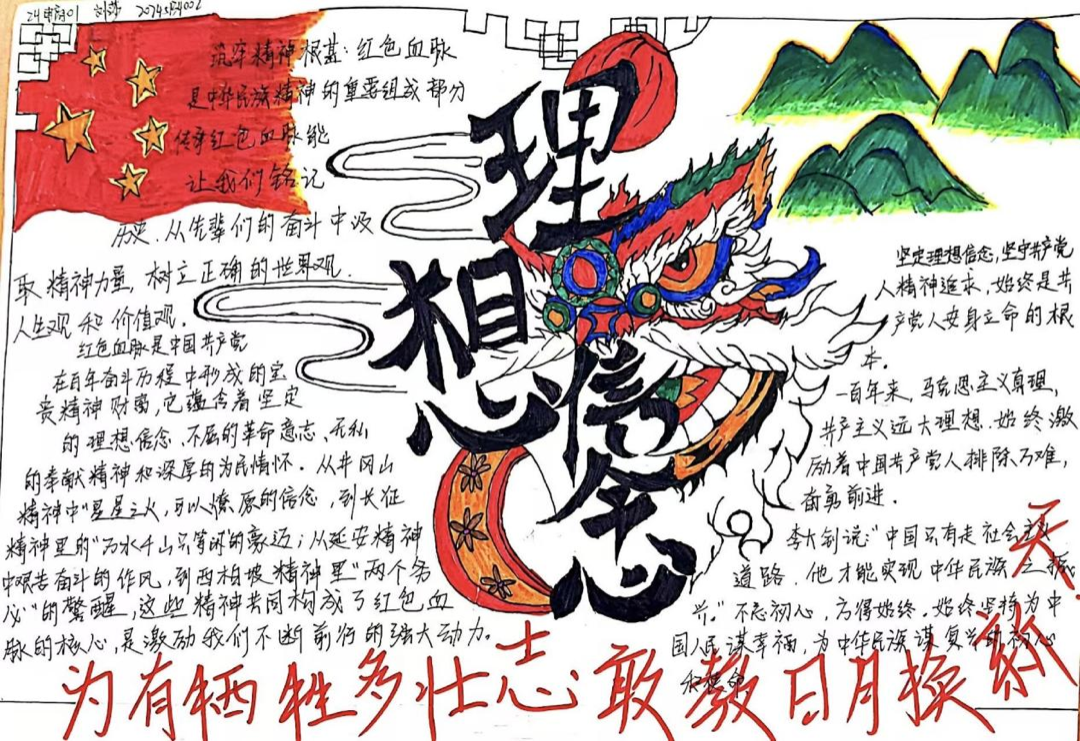 筑牢精神根基：红色血脉
是中华民族精神的重要组成部分
传承红色血脉能
让我们铭记
历史、从先辈们的奋斗中汲
取精神力量，树立正确的世界观、
人生观和价值观。
红色血脉是中国共产党
在百年奋斗历程中形成的宝
贵精神财富，它蕴含着坚定
的理想信念、不屈的革命意志、无私
的奉献精神和深厚的为民情怀。从井冈山
精神中“星星之火，可以燎原的信念，到长征
精神里的“万水千山只等闲”的豪迈；从延安精神
中艰苦奋斗的作风，到西柏坡精神里“两个务
必”的警醒，这些精神共同构成了红色血
脉的核心，是激励我们不断前行的强大动力。
理想信念
坚定理想信念，坚守共产党
人精神追求，始终是共
产党人安身立命的根
本。
一百年来，马克思主义真理，
共产主义远大理想，始终激
励着中国共产党人排除万难，
奋勇前进。
李大钊说“中国只有走社会主义
道路，他才能实现中华民族之振
兴。”不忘初心，方得始终。始终坚持为中
国人民谋幸福，为中华民族谋复兴的初心
和使命
为有牺牲多壮志敢教日月换新天